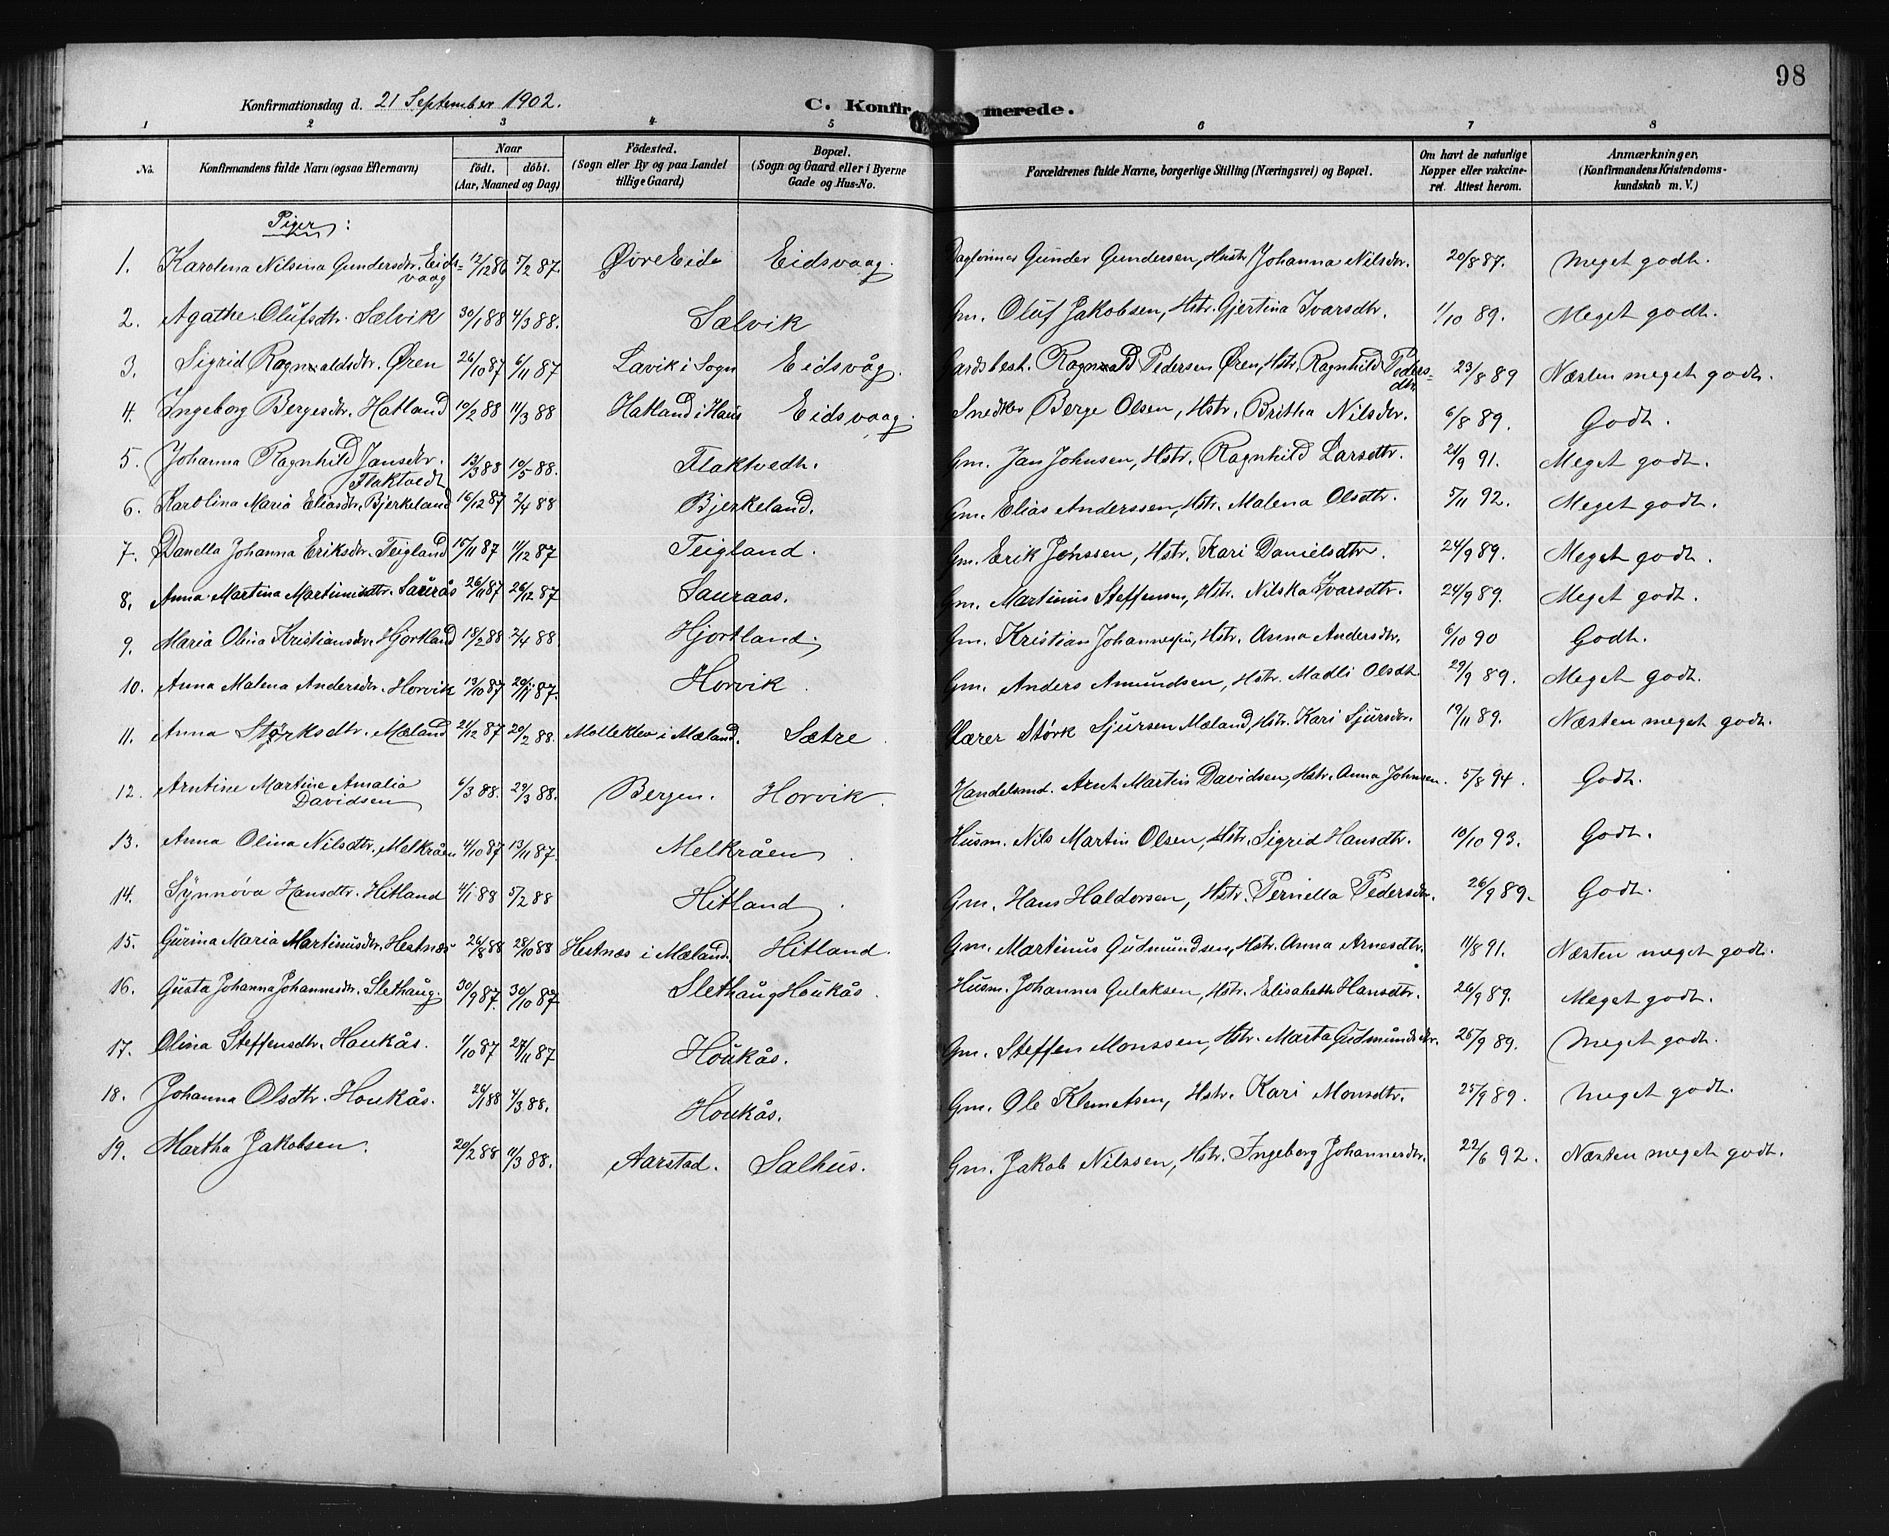 98
Konfirmationsdag d. 21 September 1902. C. Konfirmerede.
1 2 3 4 5 6 7 8
No. Konfirmandens fulde Navn (ogsaa Efternavn) Naar født. døbt. (Aar, Maaned og Dag) Fødested. (Sogn eller By og paa Landet tillige Gaard) Bopæl. (Sogn og Gaard eller i Byerne Gade og Hus-No. Forældrenes fulde Navne, borgerlige Stilling (Næringsvei) og Bopæl. Om havt de naturlige Kopper eller vakcineret. Attest herom. Anmærkninger. (Konfirmandens Kristendomskundskab m. V.)
Piger:
1. Karolena Nilsina Gundersdtr. Eidsvaag 12/12 86 5/2 87. Øvre Eide Eidsvaag. Gunder Gundersen, Hustr. Johanna Nilsdtr. 20/8 87. Meget godt.
2. Agathe Olufsdtr. Sælvik 30/1 88 4/3 88. Sælvik Gm. Oluf Jakobsen, Hstr. Gjertina Ivarsdtr. 1/10 89. Meget godt.
3. Sigrid Ragnvaldsdtr. Øren 26/10 87 6/11 87 Lavik i Sogn Eidsvåg. Gardbest. Ragnvald Pedersen Øren, Hstr. Ragnhild Pedersdtr. 23/8 89 Næsten meget godt.
4. Ingeborg Bergesdtr. Hatland 19/2 88 11/3 88 Hatland i Haus Eidsvaag. Snedker Berge Olsen, Hstr. Britha Nilsdtr. 6/8 89. Godt.
5. Johanna Ragnhild Jansdtr. Flaktvedt 13/3 88 10/5 88. Flaktvedt. Gm. Jan Johnsen, Hstr. Ragnhild Larsdtr. 21/9 91. Meget godt.
6. Karolina Maria Eliasdtr. Bjerkeland 16/12 87 2/4 88 Bjerkeland. Gm. Elias Anderssen, Hstr. Malena Olsdtr. 5/11 92. Meget godt.
7. Danella Johanna Eriksdtr. Teigland 15/11 87 11/12 87 Teigland. Gm. Erik Jenssen, Hstr. Kari Danielsdtr. 24/9 89. Meget godt.
8. Anna Martina Martinusdtr. Saurås 26/11 87 26/12 87 Sauraas. Gm. Martinus Steffensen, Hstr. Nilska Ivarsdtr. 24/9 89. Meget godt.
9. Maria Olina Kristiansdtr. Hjortland 18/2 88 2/4 88 Hjortland. Gm. Kristian Johannessen, Hstr. Anna Andersdtr. 6/10 90 Godt.
10. Anna Malena Andersdtr. Horvik 19/10 87 20/11 87. Horvik. Gm. Anders Amundsen, Hstr. Madli Olsdt 29/9 89. Meget godt.
11. Anna Størksdtr. Mæland 21/12 87 20/2 88. Molleklev i Mæland. Sætre. Lærer Størk Sjursen Mæland, Hstr. Kari Sjursdtr. 19/11 89. Næsten meget godt.
12. Arntine Martine Amalia Davidsen 6/3 88. 29/3 88. Bergen. Horvik. Handelsmd. Arnt Martin Davidsen, Hstr. Anna Johnsen. 5/8 94. Godt.
13. Anna Olina Nilsdtr. Melkråen 4/10 87 13/11 87. Melkråen. Husm. Nils Martin Olsen, Hstr. Sigrid Hansdtr. 10/10 93. Godt.
14. Synnøva Hansdtr. Hitland 4/1 88 5/2 88 Hitland. Gm. Hans Haldorsen, Hstr. Pernella Pedersdtr. 26/9 89. Godt.
15. Gurina Maria Martinusdtr. Hestnæs 26/8 88 28/10 88 Hestnæs i Mæland. Hitland. Gm. Martinus Gudmundsen, Hstr. Anna Arnesdtr. 11/8 91. Næsten meget godt.
16. Gusta Johanna Johannesdtr. Slethaug. 30/9 87. 30/10 87 Slethaug Houkås. Husm. Johannes Gulaksen, Hstr. Elisabeth Hansdtr. 26/9 89. Meget godt.
17. Olina Steffensdtr. Houkås. 1/10 87 27/11 87 Houkås. Gm. Steffen Monssen, Hstr. Marta Gudmundsdtr. 25/9 89. Meget godt.
18. Johanna Olsdtr. Houkås. 26/1 88 4/3 88. Houkås. Gm. Ole Klemetsen, Hstr. Kari Monsdtr. 25/9 89. Meget godt.
19. Martha Jakobsen. 20/2 88 11/3 88. Aarstad. Salhus. Gm. Jakob Nilssen, Hstr. Ingeborg Johannesdtr. 22/6 92. Næsten meget godt.